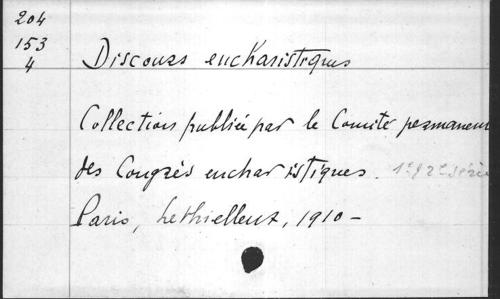 204
153
4
Discours eucharistiques
Collection publiée par le Comité permanent
des Congrès eucharistiques. 1e & 2e série
Paris, Lethielleux, 1910 -